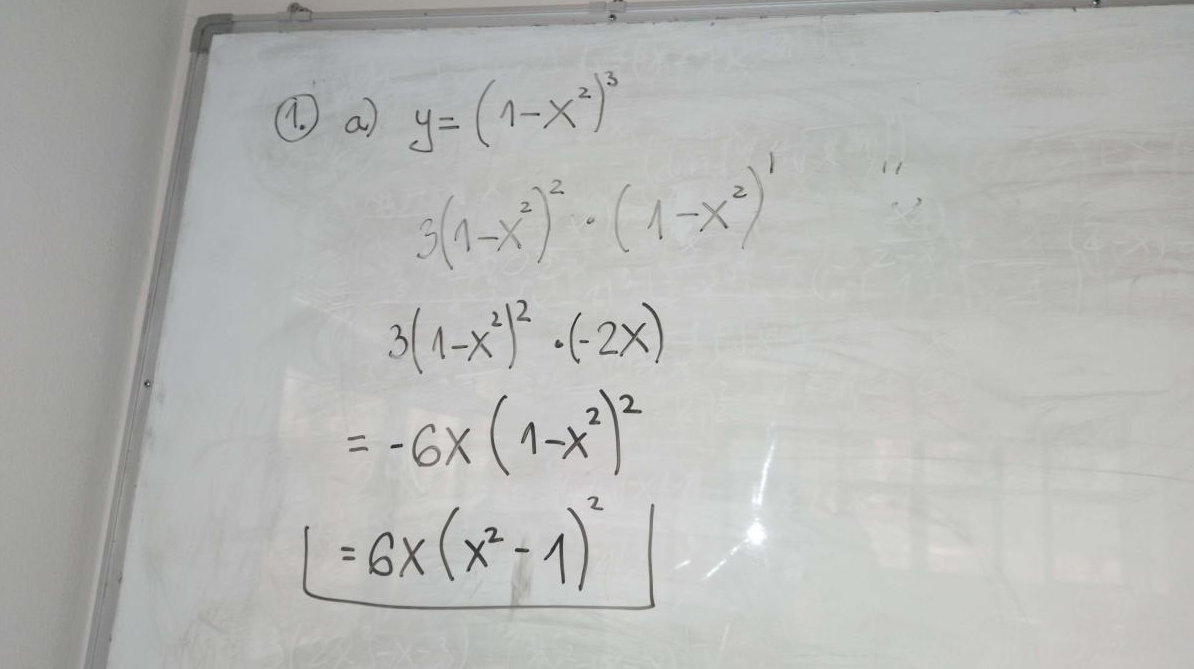 1. a) y = (1-x²)³
3(1-x²)² · (1-x²)'
3(1-x²)² · (-2x)
= -6x (1-x²)²
= 6x (x² - 1)²